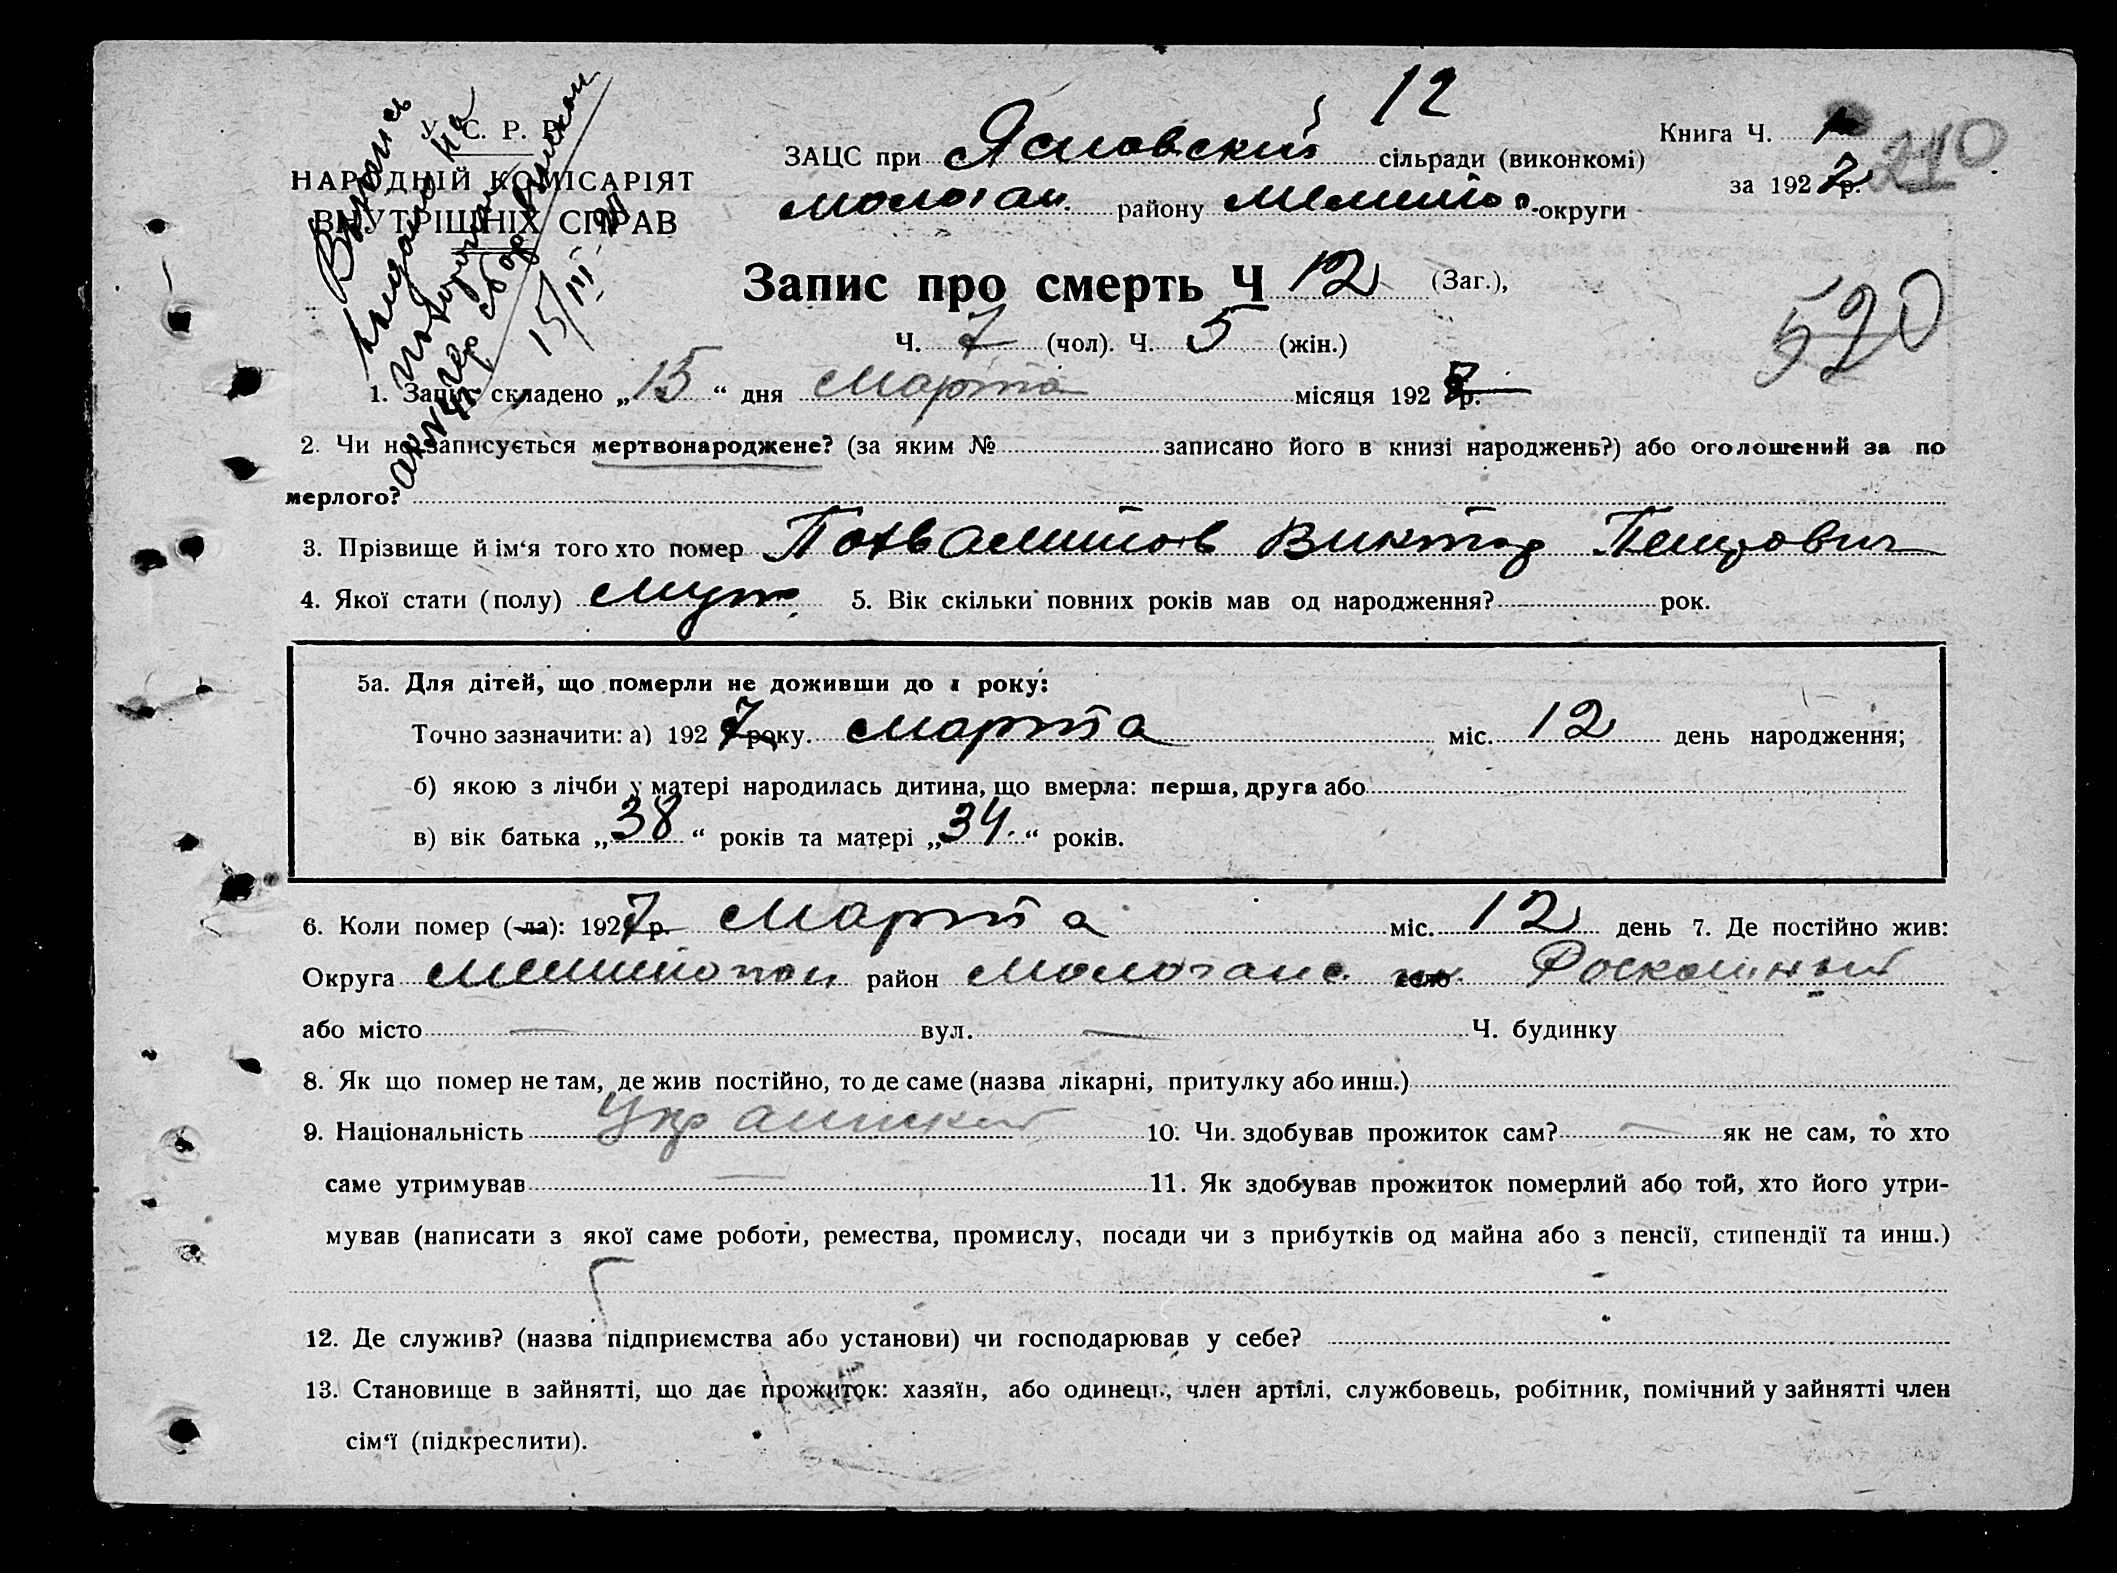 12
У. С. Р. Р.
НАРОДНІЙ КОМІСАРІЯТ
ВНУТРІШНІХ СПРАВ
Выпись
выдана на
15/III-27
ЗАЦС при Ясновский сільради (виконкомі)
Молочан. району Мелитоп. округи
Книга Ч. 1
за 1927 р.
210
Запис про смерть Ч 12 (Заг.),
Ч. 7 (чол). Ч. 5 (жін.)
520
1. Запис складено „15“ дня Марта місяця 1927 р.
2. Чи не записується мертвонароджене? (за яким № записано його в книзі народжень?) або оголошений за по
мерлого?
3. Прізвище й ім‘я того хто помер Виктор Петрович
4. Якої стати (полу) муж. 5. Вік скільки повних років мав од народження? рок.
5а. Для дітей, що померли не доживши до 1 року:
Точно зазначити: а) 1927 року. Марта міс. 12 день народження;
б) якою з лічби у матері народилась дитина, що вмерла: перша, друга або
в) вік батька „38“ років та матері „34.“ років.
6. Коли помер (-ла): 1927 р. Марта міс. 12 день 7. Де постійно жив:
Округа Мелитопол район Молочанс. село Роскошный
або місто — вул. — Ч. будинку
8. Як що помер не там, де жив постійно, то де саме (назва лікарні, притулку або инш.)
9. Національність Украинский 10. Чи здобував прожиток сам? — як не сам, то хто
саме утримував — 11. Як здобував прожиток померлий або той, хто його утри-
мував (написати з якої саме роботи, ремества, промислу, посади чи з прибутків од майна або з пенсії, стипендії та инш.)
12. Де служив? (назва підприємства або установи) чи господарював у себе?
13. Становище в зайнятті, що дає прожиток: хазяїн, або одинець, член артілі, службовець, робітник, помічний у зайнятті член
сім‘ї (підкреслити).